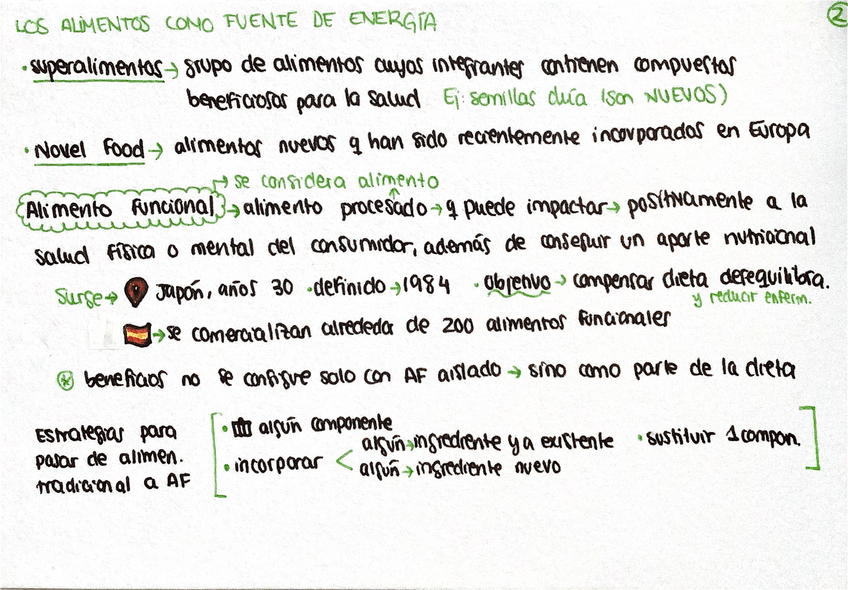 LOS ALIMENTOS COMO FUENTE DE ENERGÍA
2
· superalimentos → grupo de alimentos cuyos integrantes contienen compuestos
beneficiosos para la salud Ej: semillas chía (son NUEVOS)
· Novel Food → alimentos nuevos q han sido recientemente incorporados en Europa
→ se considera alimento
Alimento funcional → alimento procesado → q puede impactar → positivamente a la
salud física o mental del consumidor, además de conseguir un aporte nutricional
Surge → Japón, años 30 · definido → 1984 · objetivo → compensar dieta desequilibra.
y reducir enferm.
→ se comercializan alrededor de 200 alimentos funcionales
* beneficios no se consigue solo con AF aislado → sino como parte de la dieta
Estrategias para
pasar de alimen.
tradicional a AF
· algún componente
· incorporar < algún → ingrediente ya existente · sustituir 1 compon.
algún → ingrediente nuevo